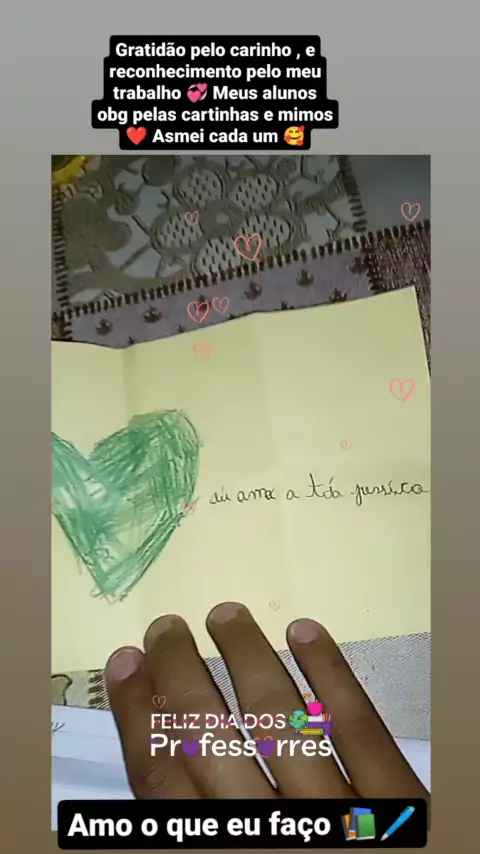 Gratidão pelo carinho , e
reconhecimento pelo meu
trabalho 💞 Meus alunos
obg pelas cartinhas e mimos
❤️ Asmei cada um 🥰
ama a tia
FELIZ DIA DOS
Professorres
Amo o que eu faço 📚🖊️